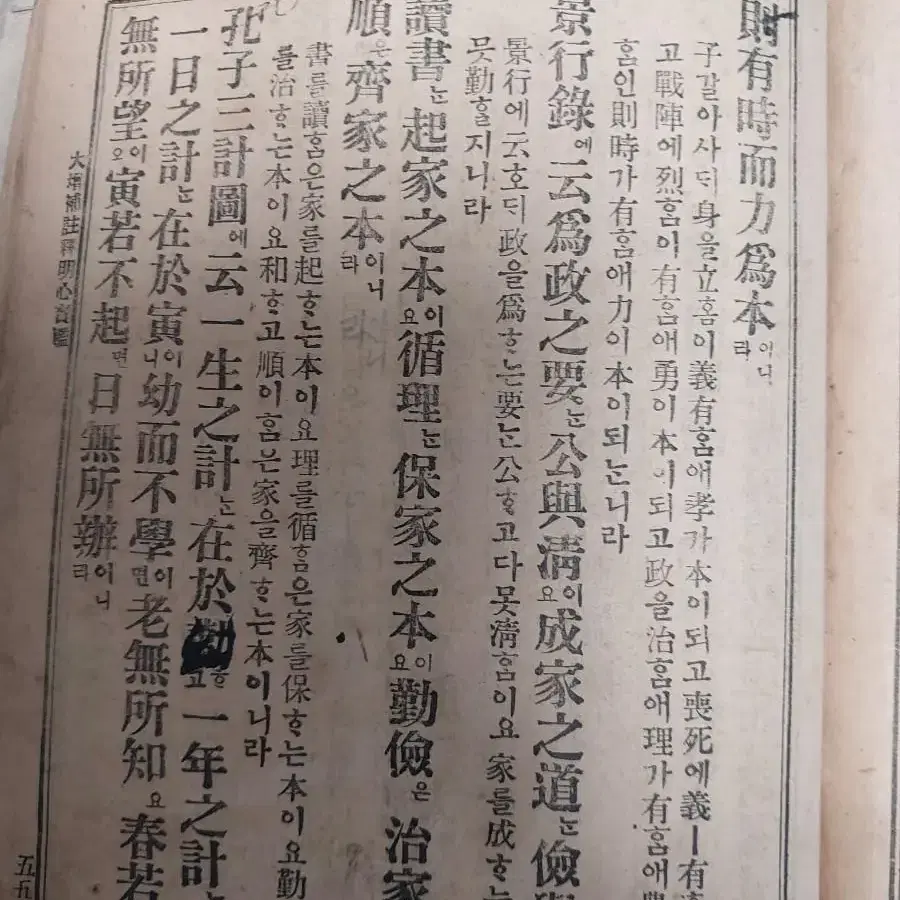 則有時而力爲本이니라
子갈아사ᄃᆡ身을立홈이義有ᄒᆞᆷ애孝가本이되고喪死에義ㅣ有
고戰陣에烈ᄒᆞᆷ이有ᄒᆞᆷ애勇이本이되고政을治ᄒᆞᆷ애理가有ᄒᆞᆷ애
ᄒᆞᆷ인則時가有ᄒᆞᆷ애力이本이되ᄂᆞ니라
景行錄에云爲政之要ᄂᆞᆫ公與淸이요成家之道ᄂᆞᆫ儉與
景行에云호ᄃᆡ政을爲ᄒᆞᄂᆞᆫ要ᄂᆞᆫ公ᄒᆞ고다못淸ᄒᆞᆷ이요家를成ᄒᆞᄂᆞᆫ
못勤ᄒᆞᆯ지니라
讀書ᄂᆞᆫ起家之本이요循理ᄂᆞᆫ保家之本이요勤儉은治家
順은齊家之本이니라
書를讀ᄒᆞᆷ은家를起ᄒᆞᄂᆞᆫ本이요理를循ᄒᆞᆷ은家를保ᄒᆞᄂᆞᆫ本이요勤
를治ᄒᆞᄂᆞᆫ本이요和ᄒᆞ고順이ᄒᆞᆷ은家을齊ᄒᆞᄂᆞᆫ本이니라
孔子三計圖에云一生之計ᄂᆞᆫ在於勤ᄒᆞ고一年之計ᄂᆞᆫ
一日之計ᄂᆞᆫ在於寅이니幼而不學이면老無所知요春若
無所望이요寅若不起면日無所辦이니라
大增補註釋明心寶鑑
五五